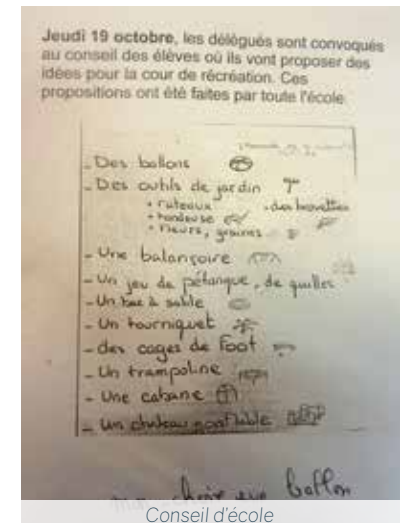 Jeudi 19 octobre, les délégués sont convoqués
au conseil des élèves où ils vont proposer des
idées pour la cour de récréation. Ces
propositions ont été faites par toute l'école
- Des ballons
- Des outils de jardin
• rateaux . des brouettes
• tondeuse
• fleurs, graines
- Une balançoire
- Un jeu de pétanque, de quilles
- Un bac à sable
- Un tourniquet
- des cages de foot
- Un trampoline
- Une cabane
- Un chateau gonflable
choix ballon
Conseil d'école